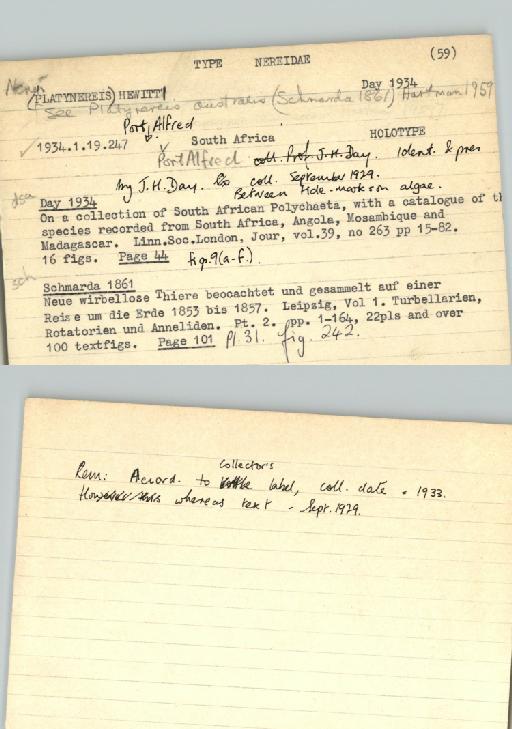 TYPE NEREIDAE (59)
Day 1934
(PLATYNEREIS) HEWITTI
See Platynereis australis (Schmarda 1861) Hartman 1959
Port Alfred
1934.1.19.247 South Africa HOLOTYPE
Port Alfred coll. Prof. J.H. Day. Ident. & pres
by J.H. Day. coll. September 1929.
Between tide-marks on algae.
Day 1934
On a collection of South African Polychaeta, with a catalogue of th
species recorded from South Africa, Angola, Mosambique and
Madagascar. Linn.Soc.London, Jour, vol.39, no 263 pp 15-82.
16 figs. Page 44 figs.9(a-f).
Schmarda 1861
Neue wirbellose Thiere beocachtet und gesammelt auf einer
Reise um die Erde 1853 bis 1857. Leipzig, Vol 1. Turbellarien,
Rotatorien und Anneliden. Pt. 2. pp. 1-164, 22pls and over
100 textfigs. Page 101 Pl. 31. fig. 242.
Rem: Accord. to collector's label, coll. date = 1933.
whereas text - Sept. 1929.